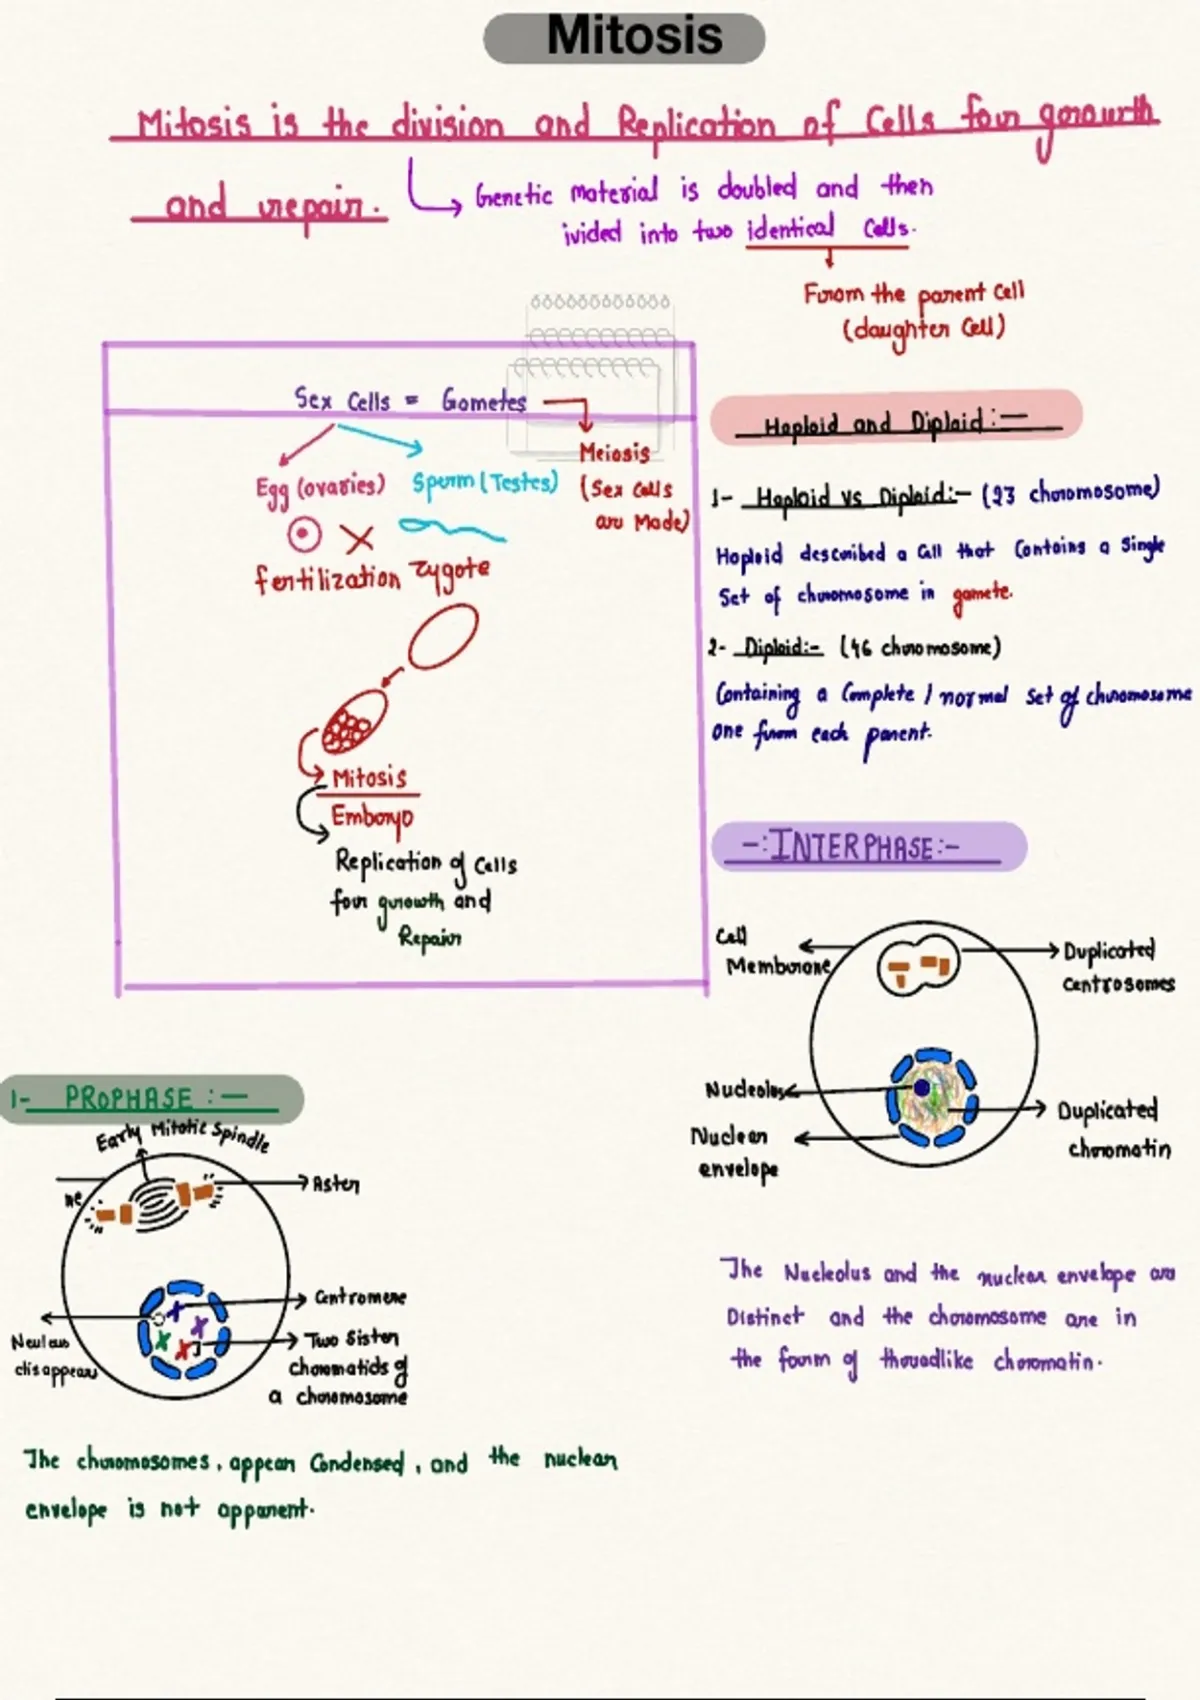 Mitosis
Mitosis is the division and Replication of Cells for growth
and repair.
Genetic material is doubled and then
ivided into two identical Cells.
From the parent Cell
(daughter Cell)
Sex Cells = Gametes
Meiosis
(Sex Cells
are Made)
Egg (ovaries)
Sperm (Testes)
fertilization Zygote
Mitosis
Embryo
Replication of Cells
for growth and
Repair
Haploid and Diploid:-
1- Haploid vs Diploid:- (23 chromosome)
Haploid described a Cell that Contains a Single
Set of chromosome in gamete.
2- Diploid:- (46 chromosome)
Containing a Complete / normal Set of chromosome
one from each parent.
-:INTERPHASE:-
Cell
Membrane
Duplicated
Centrosomes
Nucleolus
Nuclear
envelope
Duplicated
chromatin
The Nucleolus and the nuclear envelope are
Distinct and the chromosome are in
the form of threadlike chromatin.
1- PROPHASE :-
Early Mitotic Spindle
ne
Aster
Centromere
Two Sister
chromatids of
a chromosome
disappears
The chromosomes, appear Condensed, and the nuclear
envelope is not apparent.